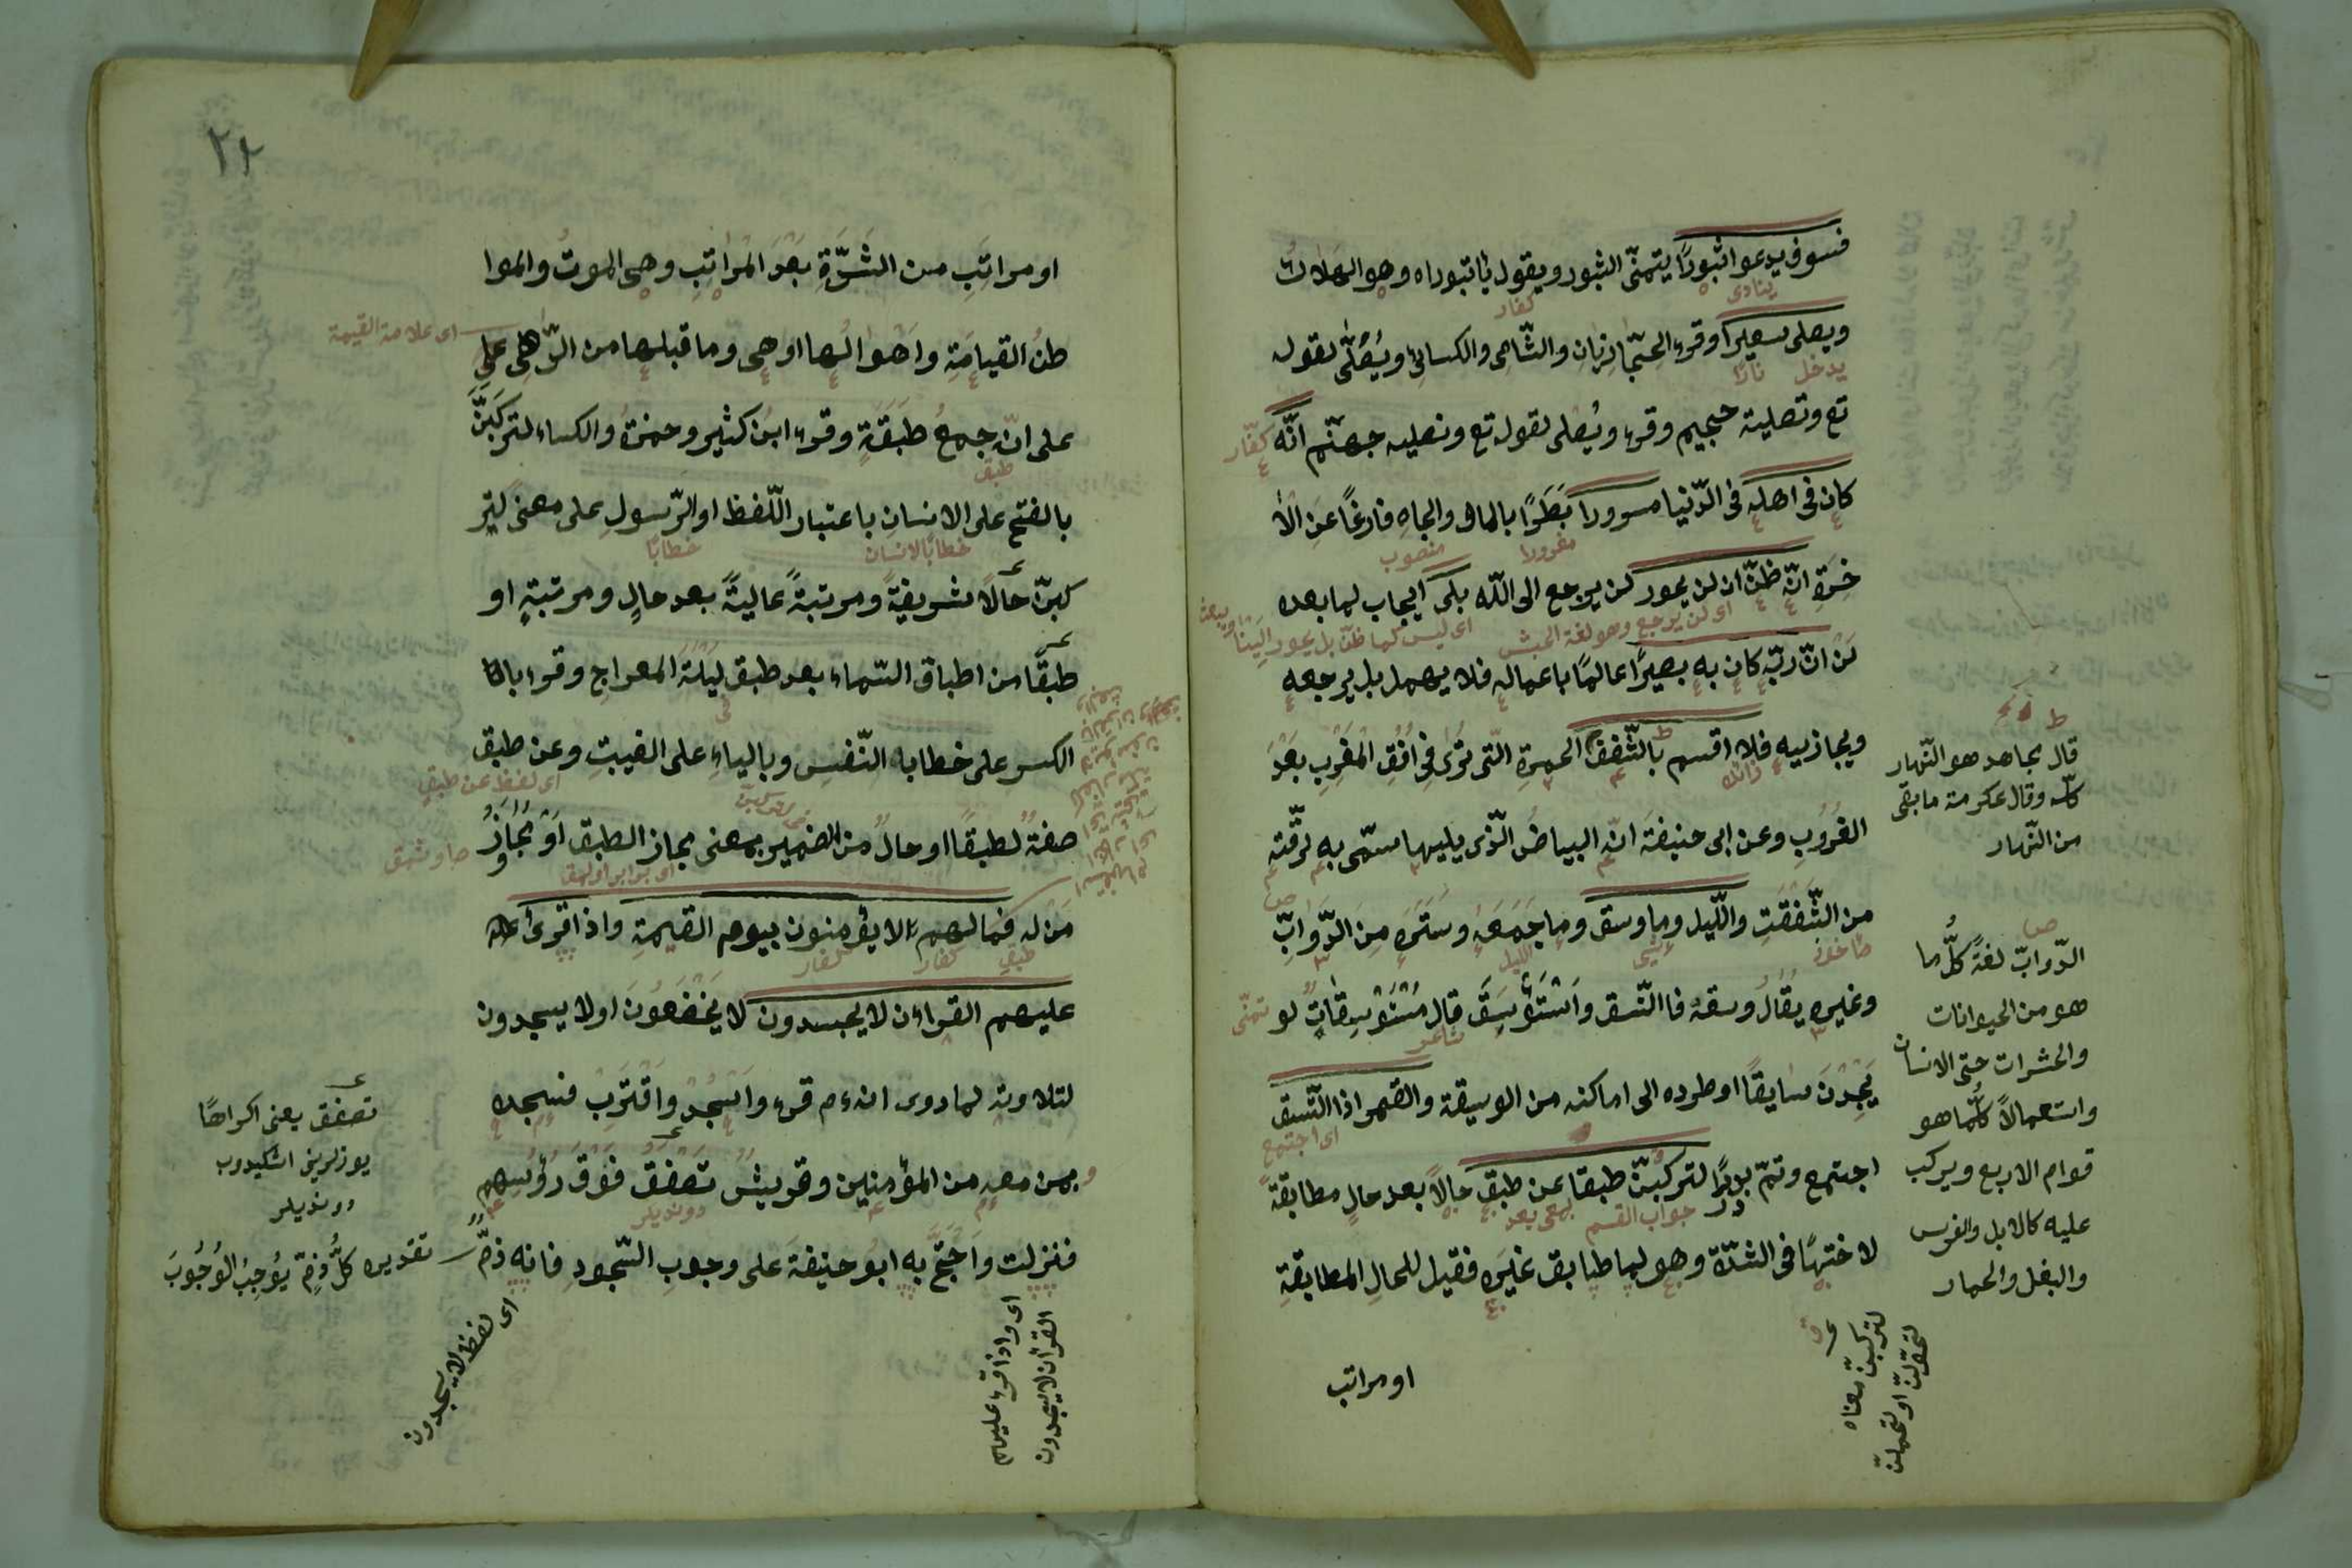 فسوف يدعوا ثبورًا يتمنّى الثبور ويقول يا ثبوراه وهو الهلاك
ينادى
كفار
ويصلى سعيرًا وقرء الحجازيان والشّامى والكسائى ويُصَلّى لقوله
يدخل نارًا
تع وتصلية جحيم وقرء ويُصْلى لقوله تع ونصليه جهنّم انّه
كفّار
كان فى اهله فى الدّنيا مسرورا بَطَرًا بالمال والجاهِ فارغًا عَنِ الْاٰ
مغرورا منصوب
خِرَةِ انّه ظنّ ان لن يحور لن يرجع الى اللّه بلى ايجاب لما بعده
اى لن يرجع وهو لغة الحبش
اى ليس كما ظنّ بل يحور الينا ويبعث
لَنْ انّ ربّه كان به بصيرًا عالمًا باعماله فلا يهمله بل يرجعه
ويجازييه فلا اقسم بالشّفق الحمرة الّتى تُرٰى فِى اُفُقِ الْمَغْرِبِ بَعْدَ
زائدة
الغُرُوبِ وعن ابى حنيفةَ انّه البياضُ الّذى يليها سمّى به لرقّته
من الشَّفَقَتِ واللّيل وما وسق وما جَمَعَهُ وسَتَرَهُ مِنَ الدَّوَابِّ
الليل
وغيره يُقَالُ وسقه فاتّسق واسْتَوْسَقَ قال مُسْتَوْسِقَاتٍ لو
تمنّى
شاعر
يَجِدْنَ سَايقًا او طرده الى اماكنه من الوسيقة والقمر اذا اتّسق
اى اجتمع
اجتمع وتمّ بدرًا لتركبنّ طبقا عن طبق حالاً بعد حالٍ مطابقةً
جواب القسم بمعنى بعد
لاختها فى الشدّة وهو لما طابق غيرَه فقيل للحالِ المطابقةِ
او مراتب
قال مجاهد هو النّهار
كلّه وقال عكرمة ما بقى
من النّهار
الدّوابّ لغةً كلُّ ما
هو من الحيوانات
والحشرات حتى الانسان
واستعمالاً كلّما هو
قوام الاربع ويركب
عليه كالابل والفرس
والبغل والحمار
لتركبنّ معناه
لتحوّلنّ او لتحملنّ
٢٤
او مراتبَ من الشِّدَّةِ بعد المراتبِ وهى الموتُ والموا
طنُ القيامةِ واهوالها او هى وما قبلها من الدّواهى
اى علامة القيمة
على انّه جمعُ طَبَقَةٍ وقرء ابن كثير وحمزةُ والكساء لتركَبَنَّ
طبق
بالفتح على الانسانِ باعتبار اللّفظ او الرّسولِ على معنى لتر
خطابًا لانسان
خطابًا
كبنّ حالاً شريفةً ومرتبةً عاليةً بعد حالٍ ومرتبةٍ او
طبقًا من اطباق السّماء بعد طبق ليلةَ المعراجِ وقرء بالكا
الكسر على خطابه النّفسِ وبالياءِ على الغيبتِ وعن طبق
اى لفظ عن طبقٍ
صفةٌ لطبقًا او حالٌ من الضمير بمعنى مجاز الطبق اَوْ مُجَاوِزٌ
مَنْ له فما لهم لا يؤمنون بيوم القيمةِ واذا قرئ
طبقٍ كفار كفار
عليهم القراءن لا يجسدون لا يَخْضَعُونَ او لا يسجدون
لتلاوته لما روى انه ءم قرء واسْجُدْ وَاقْتَرِبْ فسجد
بمن معه من المؤمنين وقريشٌ تصفقُ فَوْقَ رُؤُسِهم
دوندیلر
فنزلت واحْتَجَّ به ابُو حنيفةَ على وجوب السّجود فانه ذمّ
تصفق يعنى اكراهًا
يوزلرينى اشكيدوب
دوندیلر
تقديره كلُّ ذمٍّ يُوجِبُ الوُجُوبَ
اى لفظ لا يسجدون
اى واذا قرء عليهم
القرأن لا يسجدون